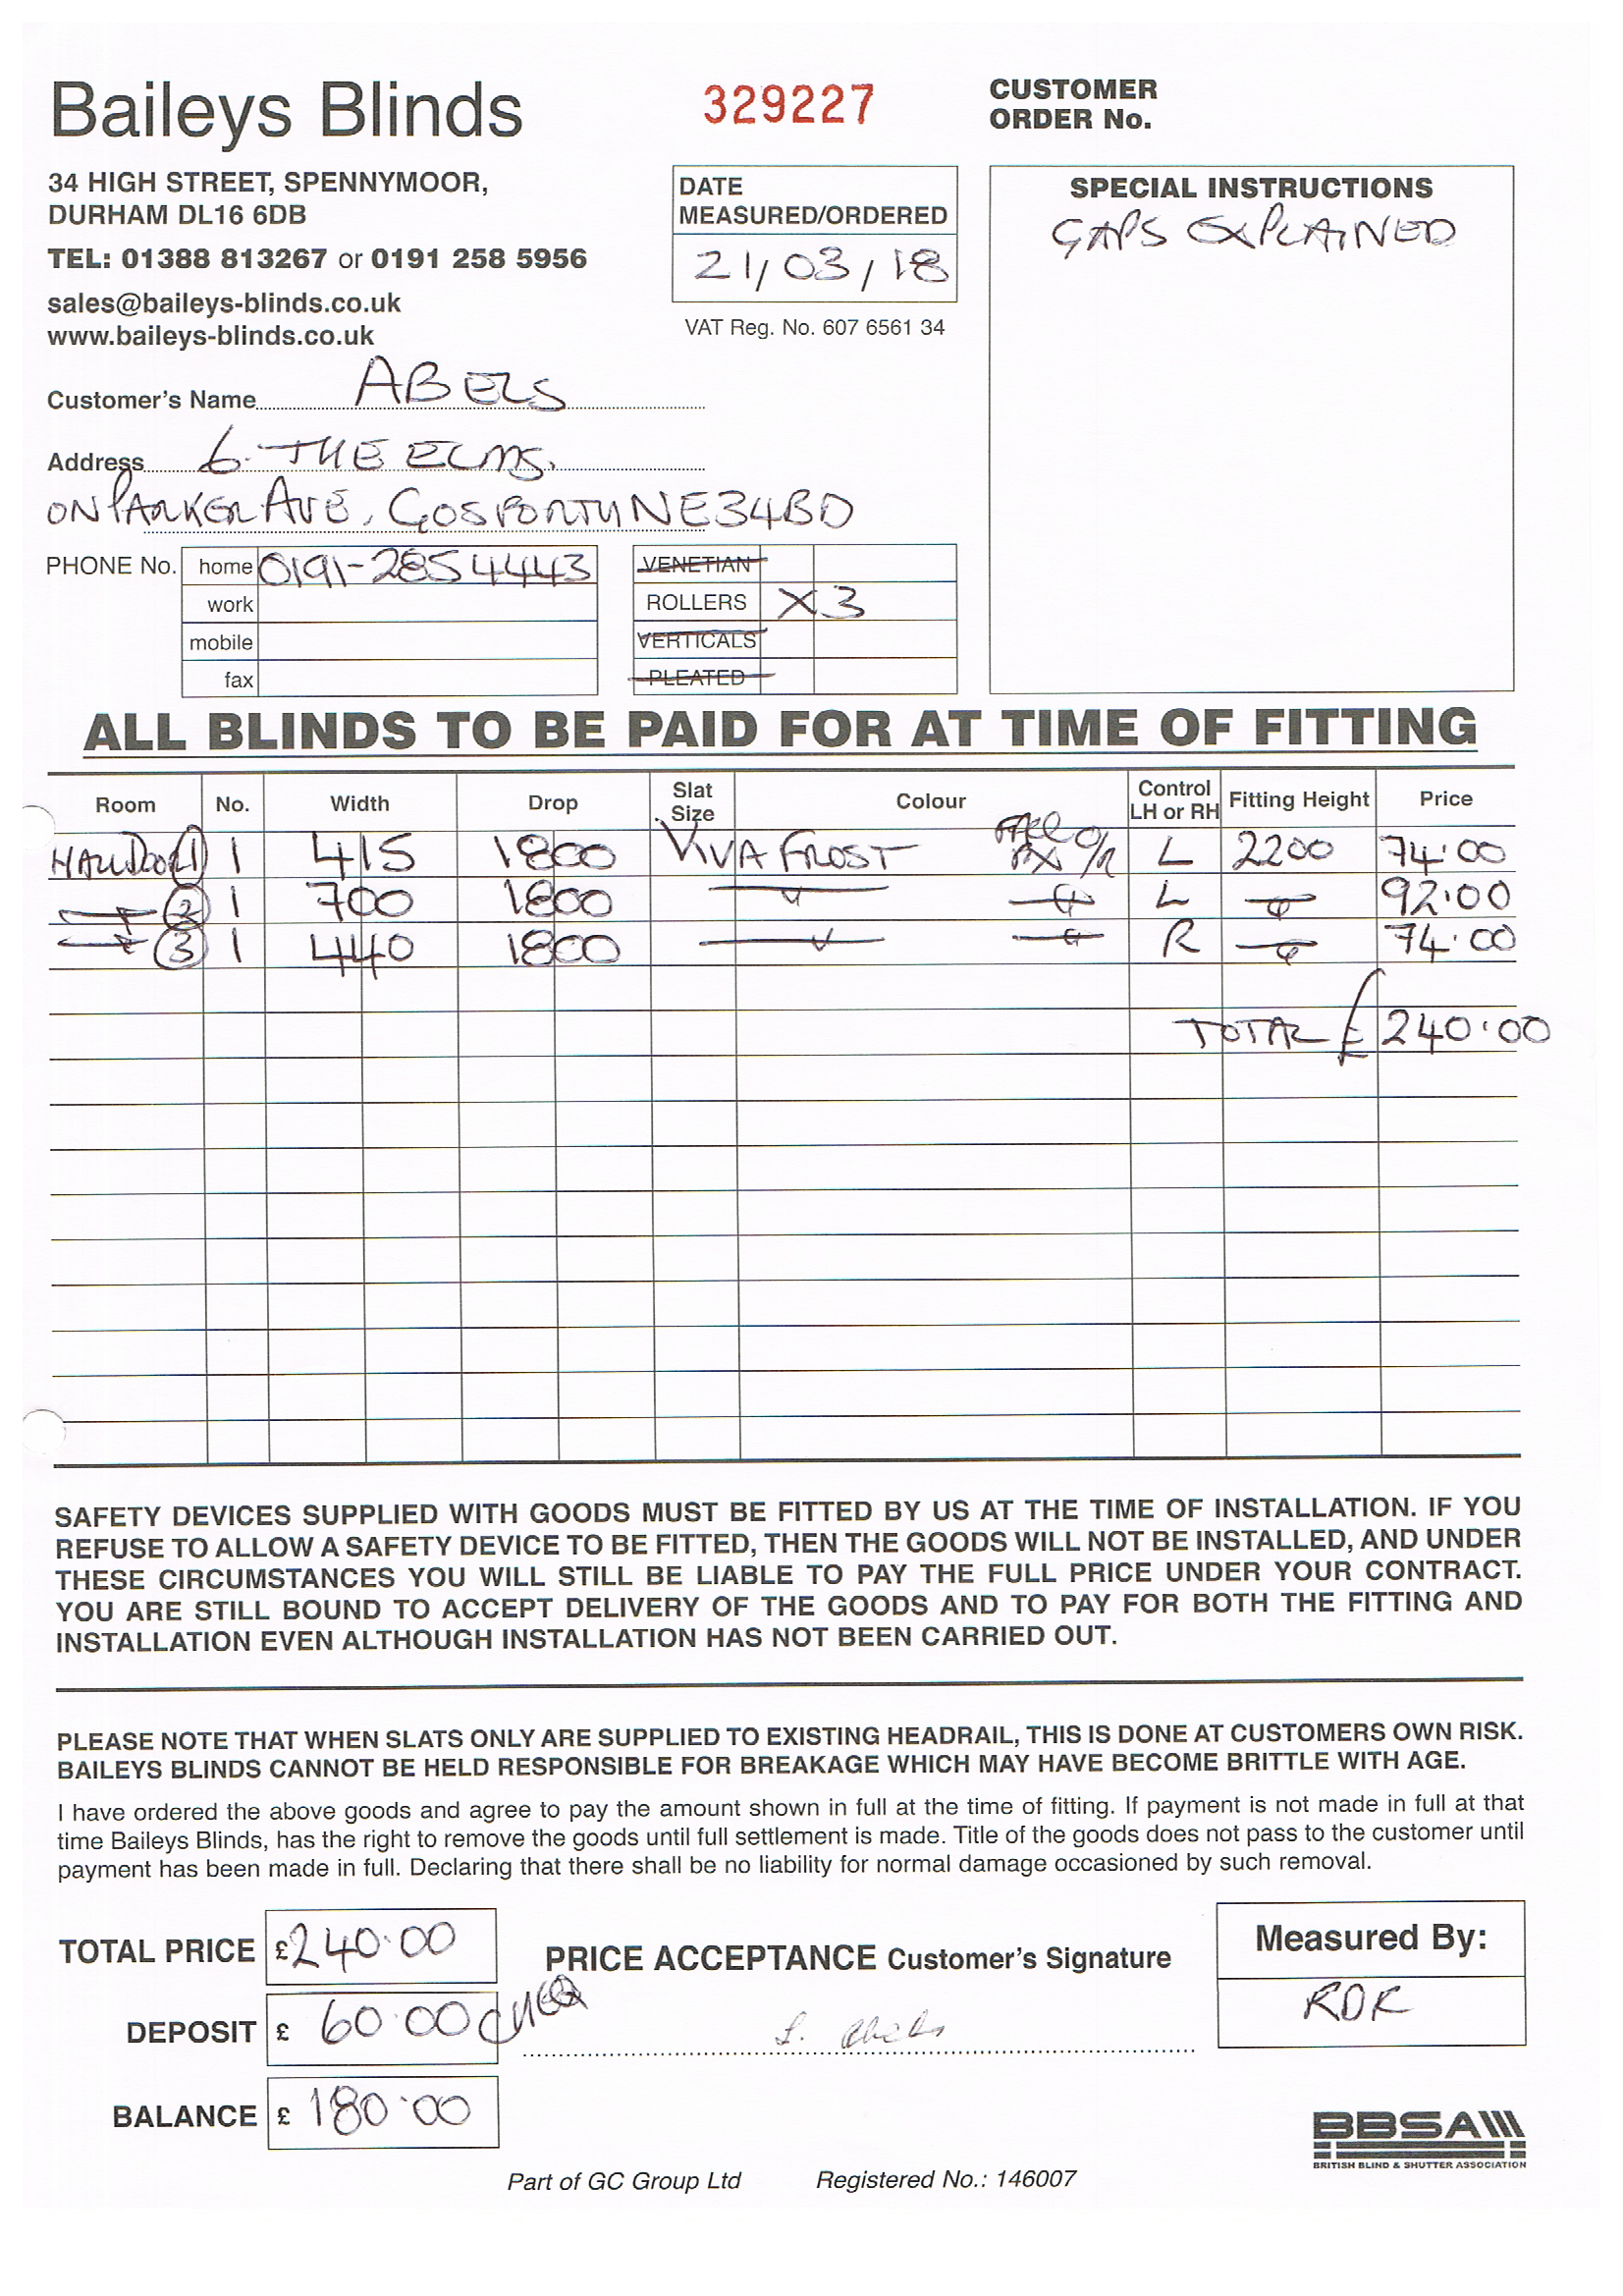 Baileys Blinds
329227
CUSTOMER
ORDER No.
34 HIGH STREET, SPENNYMOOR,
DURHAM DL16 6DB
TEL: 01388 813267 or 0191 258 5956
sales@baileys-blinds.co.uk
www.baileys-blinds.co.uk
DATE
MEASURED/ORDERED
21/03/18
VAT Reg. No. 607 6561 34
SPECIAL INSTRUCTIONS
GAPS EXPLAINED
Customer's Name ABELS
Address 6 THE ELMS,
ON PARKER AVE, GOSFORTH NE34BD
PHONE No. home 0191-2854443
work
mobile
fax
VENETIAN
ROLLERS X3
VERTICALS
PLEATED
ALL BLINDS TO BE PAID FOR AT TIME OF FITTING
Room No. Width Drop Slat Size Colour Control LH or RH Fitting Height Price
1 1 415 1800 VIVA FROST O/R L 2200 74.00
2 1 700 1800 L 92.00
3 1 440 1800 R 74.00
TOTAL £240.00
SAFETY DEVICES SUPPLIED WITH GOODS MUST BE FITTED BY US AT THE TIME OF INSTALLATION. IF YOU
REFUSE TO ALLOW A SAFETY DEVICE TO BE FITTED, THEN THE GOODS WILL NOT BE INSTALLED, AND UNDER
THESE CIRCUMSTANCES YOU WILL STILL BE LIABLE TO PAY THE FULL PRICE UNDER YOUR CONTRACT.
YOU ARE STILL BOUND TO ACCEPT DELIVERY OF THE GOODS AND TO PAY FOR BOTH THE FITTING AND
INSTALLATION EVEN ALTHOUGH INSTALLATION HAS NOT BEEN CARRIED OUT.
PLEASE NOTE THAT WHEN SLATS ONLY ARE SUPPLIED TO EXISTING HEADRAIL, THIS IS DONE AT CUSTOMERS OWN RISK.
BAILEYS BLINDS CANNOT BE HELD RESPONSIBLE FOR BREAKAGE WHICH MAY HAVE BECOME BRITTLE WITH AGE.
I have ordered the above goods and agree to pay the amount shown in full at the time of fitting. If payment is not made in full at that
time Baileys Blinds, has the right to remove the goods until full settlement is made. Title of the goods does not pass to the customer until
payment has been made in full. Declaring that there shall be no liability for normal damage occasioned by such removal.
TOTAL PRICE £240.00
PRICE ACCEPTANCE Customer's Signature
Measured By:
RDR
DEPOSIT £ 60.00 CHEQ
BALANCE £ 180.00
BBSA
BRITISH BLIND & SHUTTER ASSOCIATION
Part of GC Group Ltd Registered No.: 146007